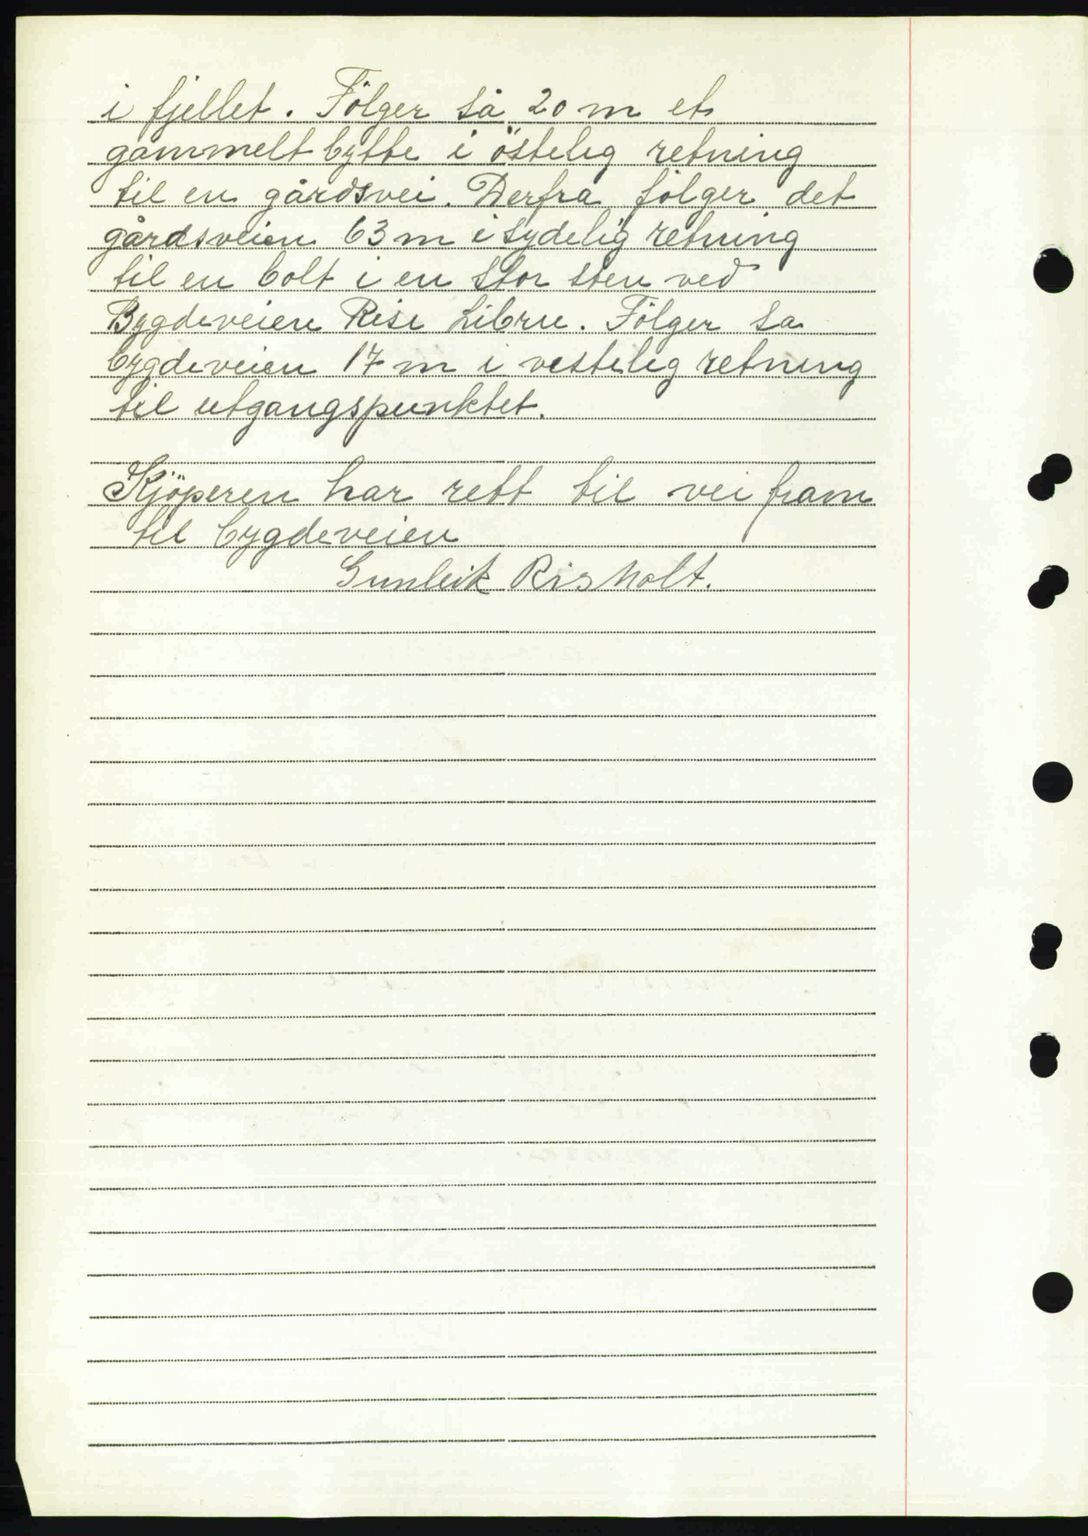 i fjellet. Fölger så 20 m et
gammelt bytte i östelig retning
til en gårdsvei. Derfra fölger det
gårdsveien 63 m i sydelig retning
til en bolt i en stor sten ved
Bygdeveien Rise Librue. Fölger sa
bygdeveien 17 m i vestelig retning
til utgangspunktet.
Kjöperen har rett til vei fram
til bygdeveien
Gunleik Risholt.